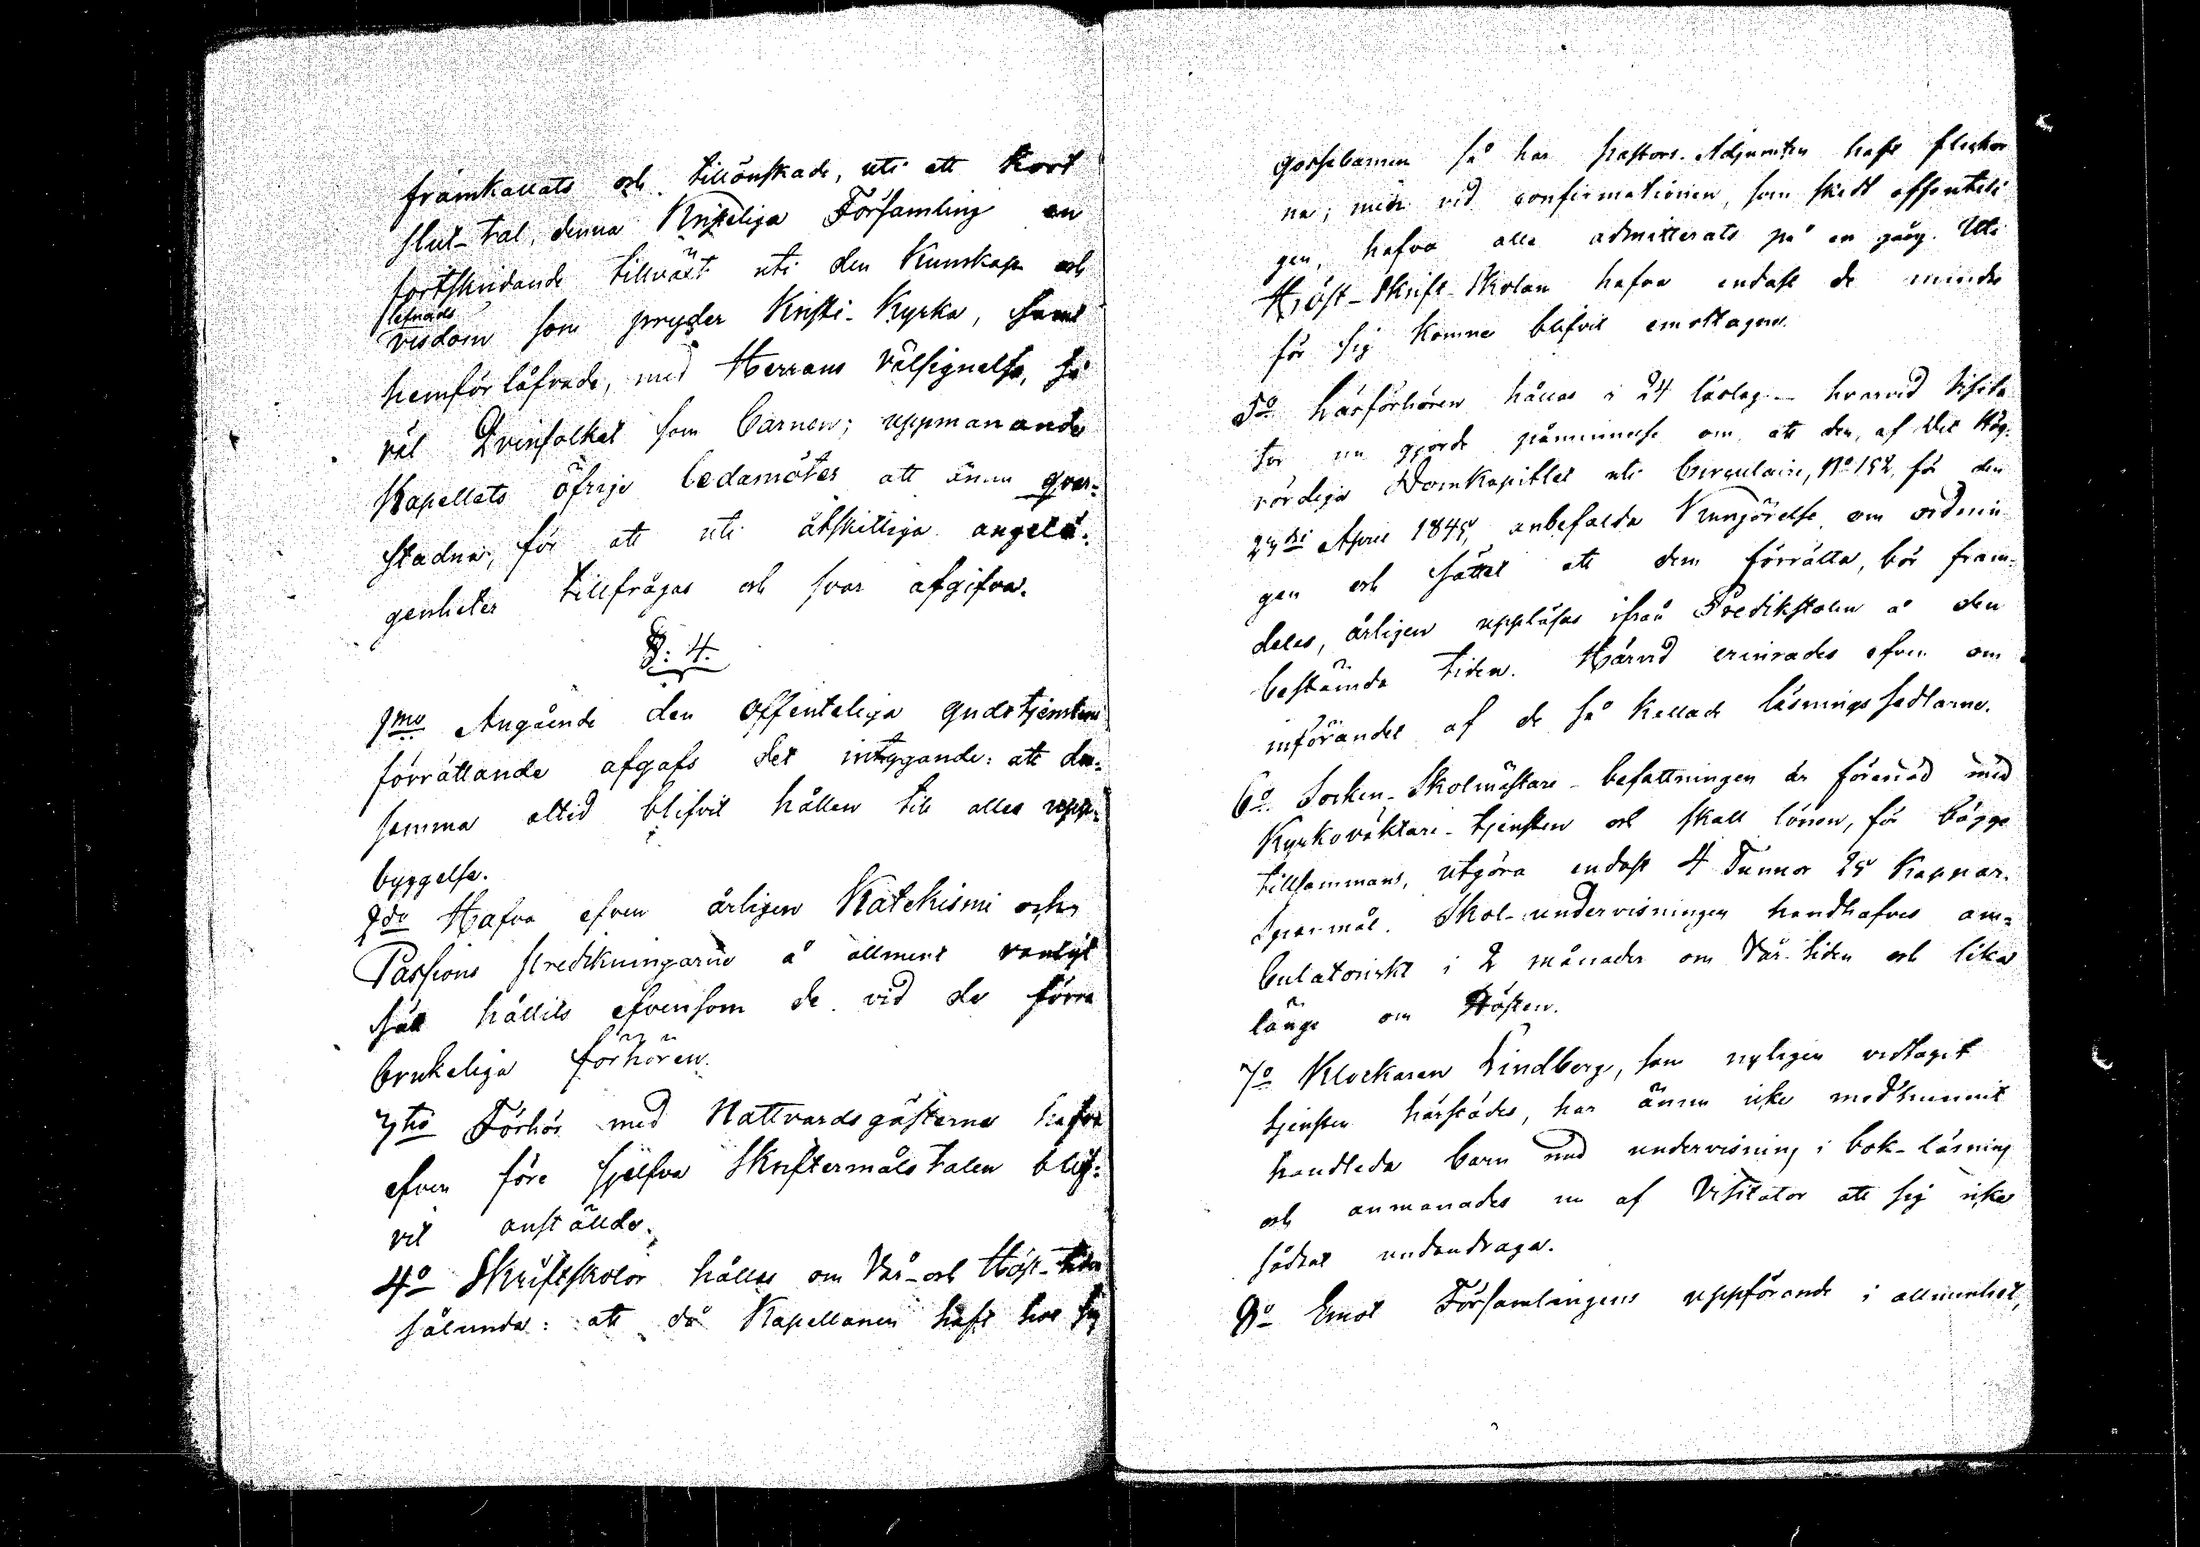 framkallats och tillönskade, uti ett kort
slut-tal, denna Kristeliga Församling en
fortskridande tillväxt uti den Kunskap och
lefnads
visdom som pryder Kristi-Kyrka, samt
hemförlåfvade, med Herrans Välsignelse, så
väl Qvinfolket som barnen; uppmanande
Kapellets öfrige ledamöter att ännu qvar-
stadna, för att uti åtskilliga angelä-
genheter tillfrågas och svar afgifva.
§: 4.
1mo Angående den offenteliga gudstjenstens
förrättande afgafs det intygande: att den-
samma altid blifvit hållen till alles upp-
byggelse.
2do Hafva efven årligen Katekismi och
Passions predikningarne å allment vanligt
sätt hållits efvensom de vid de förra
brukeliga förhören.
3tio Förhör med Nattvardsgästerna hafva
efven före sjelfva Skriftermåls talen blif-
vit anställde.
4o Skriftskolor hållas om Vår- och Höst-tiden
sålunda: att då Kapellanen haft hos sig
gossebarnen så har Pastors-Adjuncten haft flickor
na; men vid confirmationen, som skedt offenteli
gen, hafva alla admitterats på en gång. Uti
Höst-Skrift-Skolan hafva endast de mindre
för sig komne blifvit emottagne.
5o Läsförhören hållas i 24 läslag – hvarvid Visita
tor nu gjorde påminnelse om att den, af Det Hög-
vördiga Domkapitlet uti Circulaire, No 152, för den
24de April 1845, anbefalda Kungörelse om ordnin
gen och sättet att dem förrätta, bör fram-
deles, årligen uppläsas ifrån Predikstolen å den
bestämda tiden. Härvid erinrades efven om
införandet af de så kallade läsningssedlarne.
6o Socken-Skolmästare-befattningen är förenad med
Kyrkovaktare-tjensten och skall lönen, för bägge
tillsammans, utgöra endast 4 Tunnor 25 Kappar
Spanmål. Skol-undervisningen handhafves am-
bulatoriskt i 2 månader om Vår-tiden och lika
länge om Hösten.
7o Klockaren Lindberg, som nyligen vidtagit
tjensten härstädes, har ännu icke medhunnit
handleda barn med undervisning i bok-läsning
och anmanades nu af Visitator att sig icke
sådant undandraga.
8o Emot Församlingens uppförande i allmenhet,